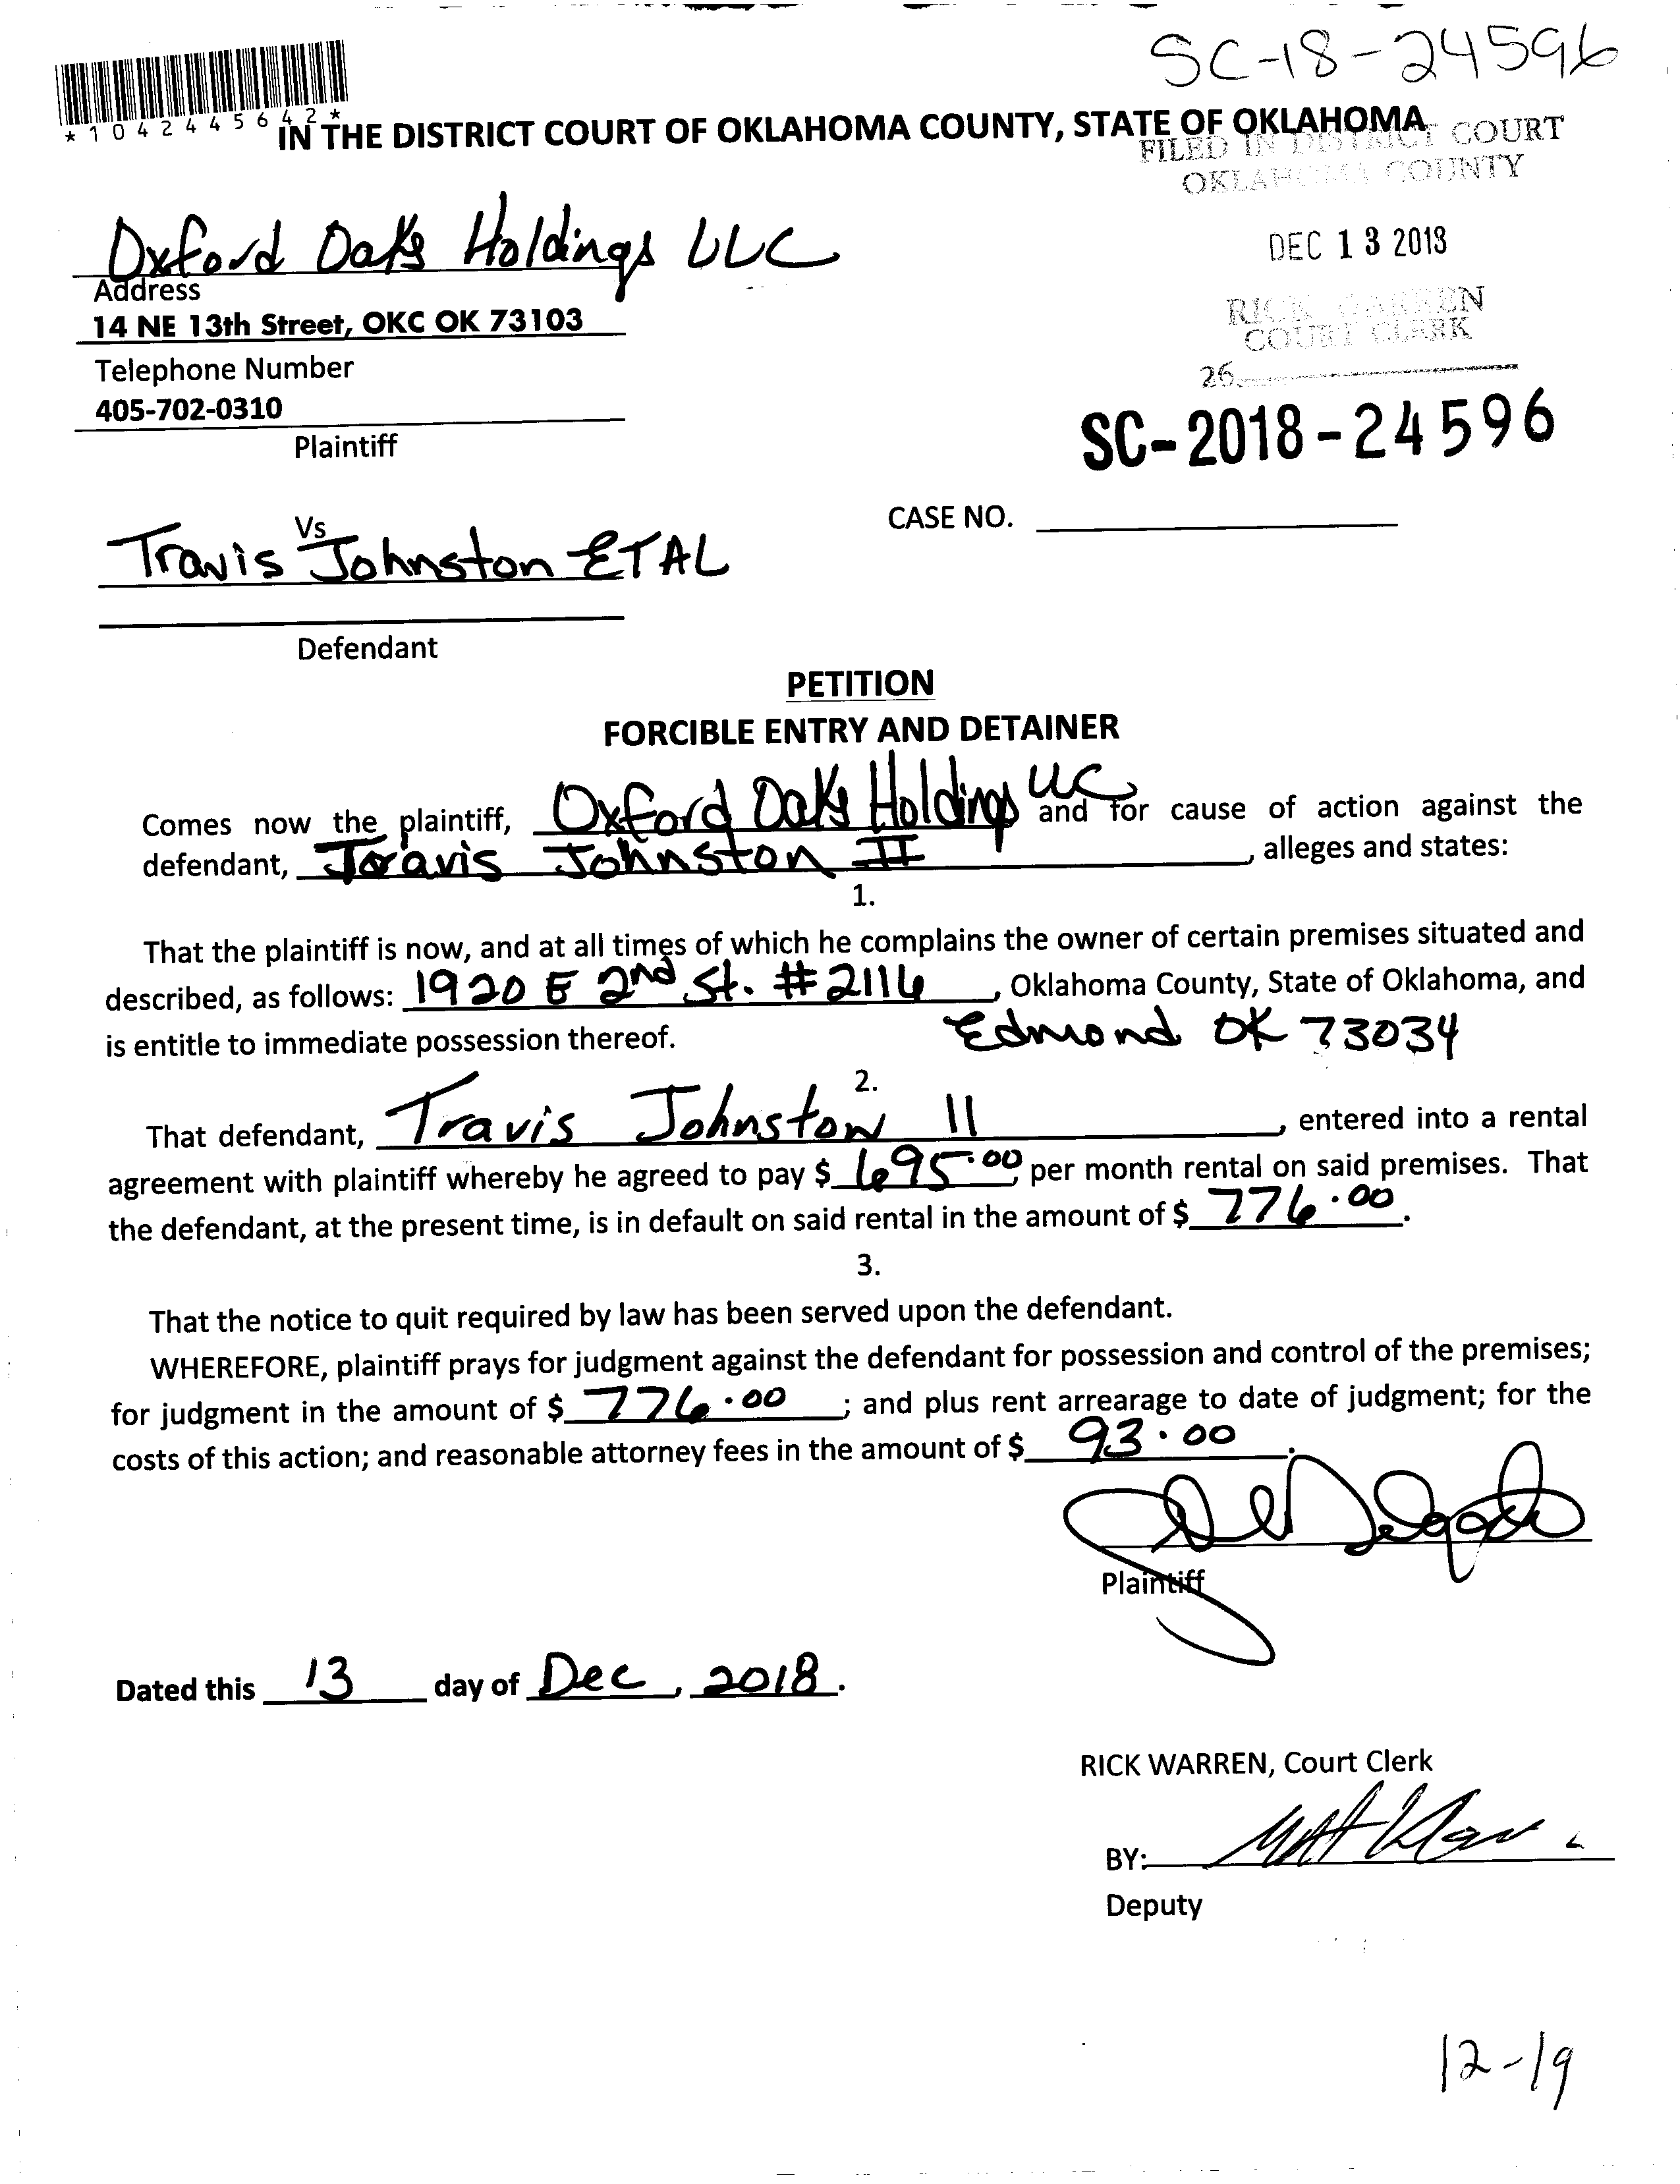 SC-18-24596
*1042445642*
IN THE DISTRICT COURT OF OKLAHOMA COUNTY, STATE OF OKLAHOMA
FILED IN DISTRICT COURT
OKLAHOMA COUNTY
Oxford Oaks Holdings LLC
DEC 13 2018
Address
14 NE 13th Street, OKC OK 73103
RICK WARREN
COURT CLERK
Telephone Number
26
405-702-0310
SC-2018-24596
Plaintiff
Vs
CASE NO.
Travis Johnston ETAL
Defendant
PETITION
FORCIBLE ENTRY AND DETAINER
Comes now the plaintiff, Oxford Oaks Holdings LLC and for cause of action against the
defendant, Travis Johnston II, alleges and states:
1.
That the plaintiff is now, and at all times of which he complains the owner of certain premises situated and
described, as follows: 1920 E 2nd St. #2116, Oklahoma County, State of Oklahoma, and
is entitle to immediate possession thereof. Edmond OK 73034
2.
That defendant, Travis Johnston II, entered into a rental
agreement with plaintiff whereby he agreed to pay $ 695.00, per month rental on said premises. That
the defendant, at the present time, is in default on said rental in the amount of $ 776.00.
3.
That the notice to quit required by law has been served upon the defendant.
WHEREFORE, plaintiff prays for judgment against the defendant for possession and control of the premises;
for judgment in the amount of $ 776.00; and plus rent arrearage to date of judgment; for the
costs of this action; and reasonable attorney fees in the amount of $ 93.00.
Plaintiff
Dated this 13 day of Dec, 2018.
RICK WARREN, Court Clerk
BY:
Deputy
12-19